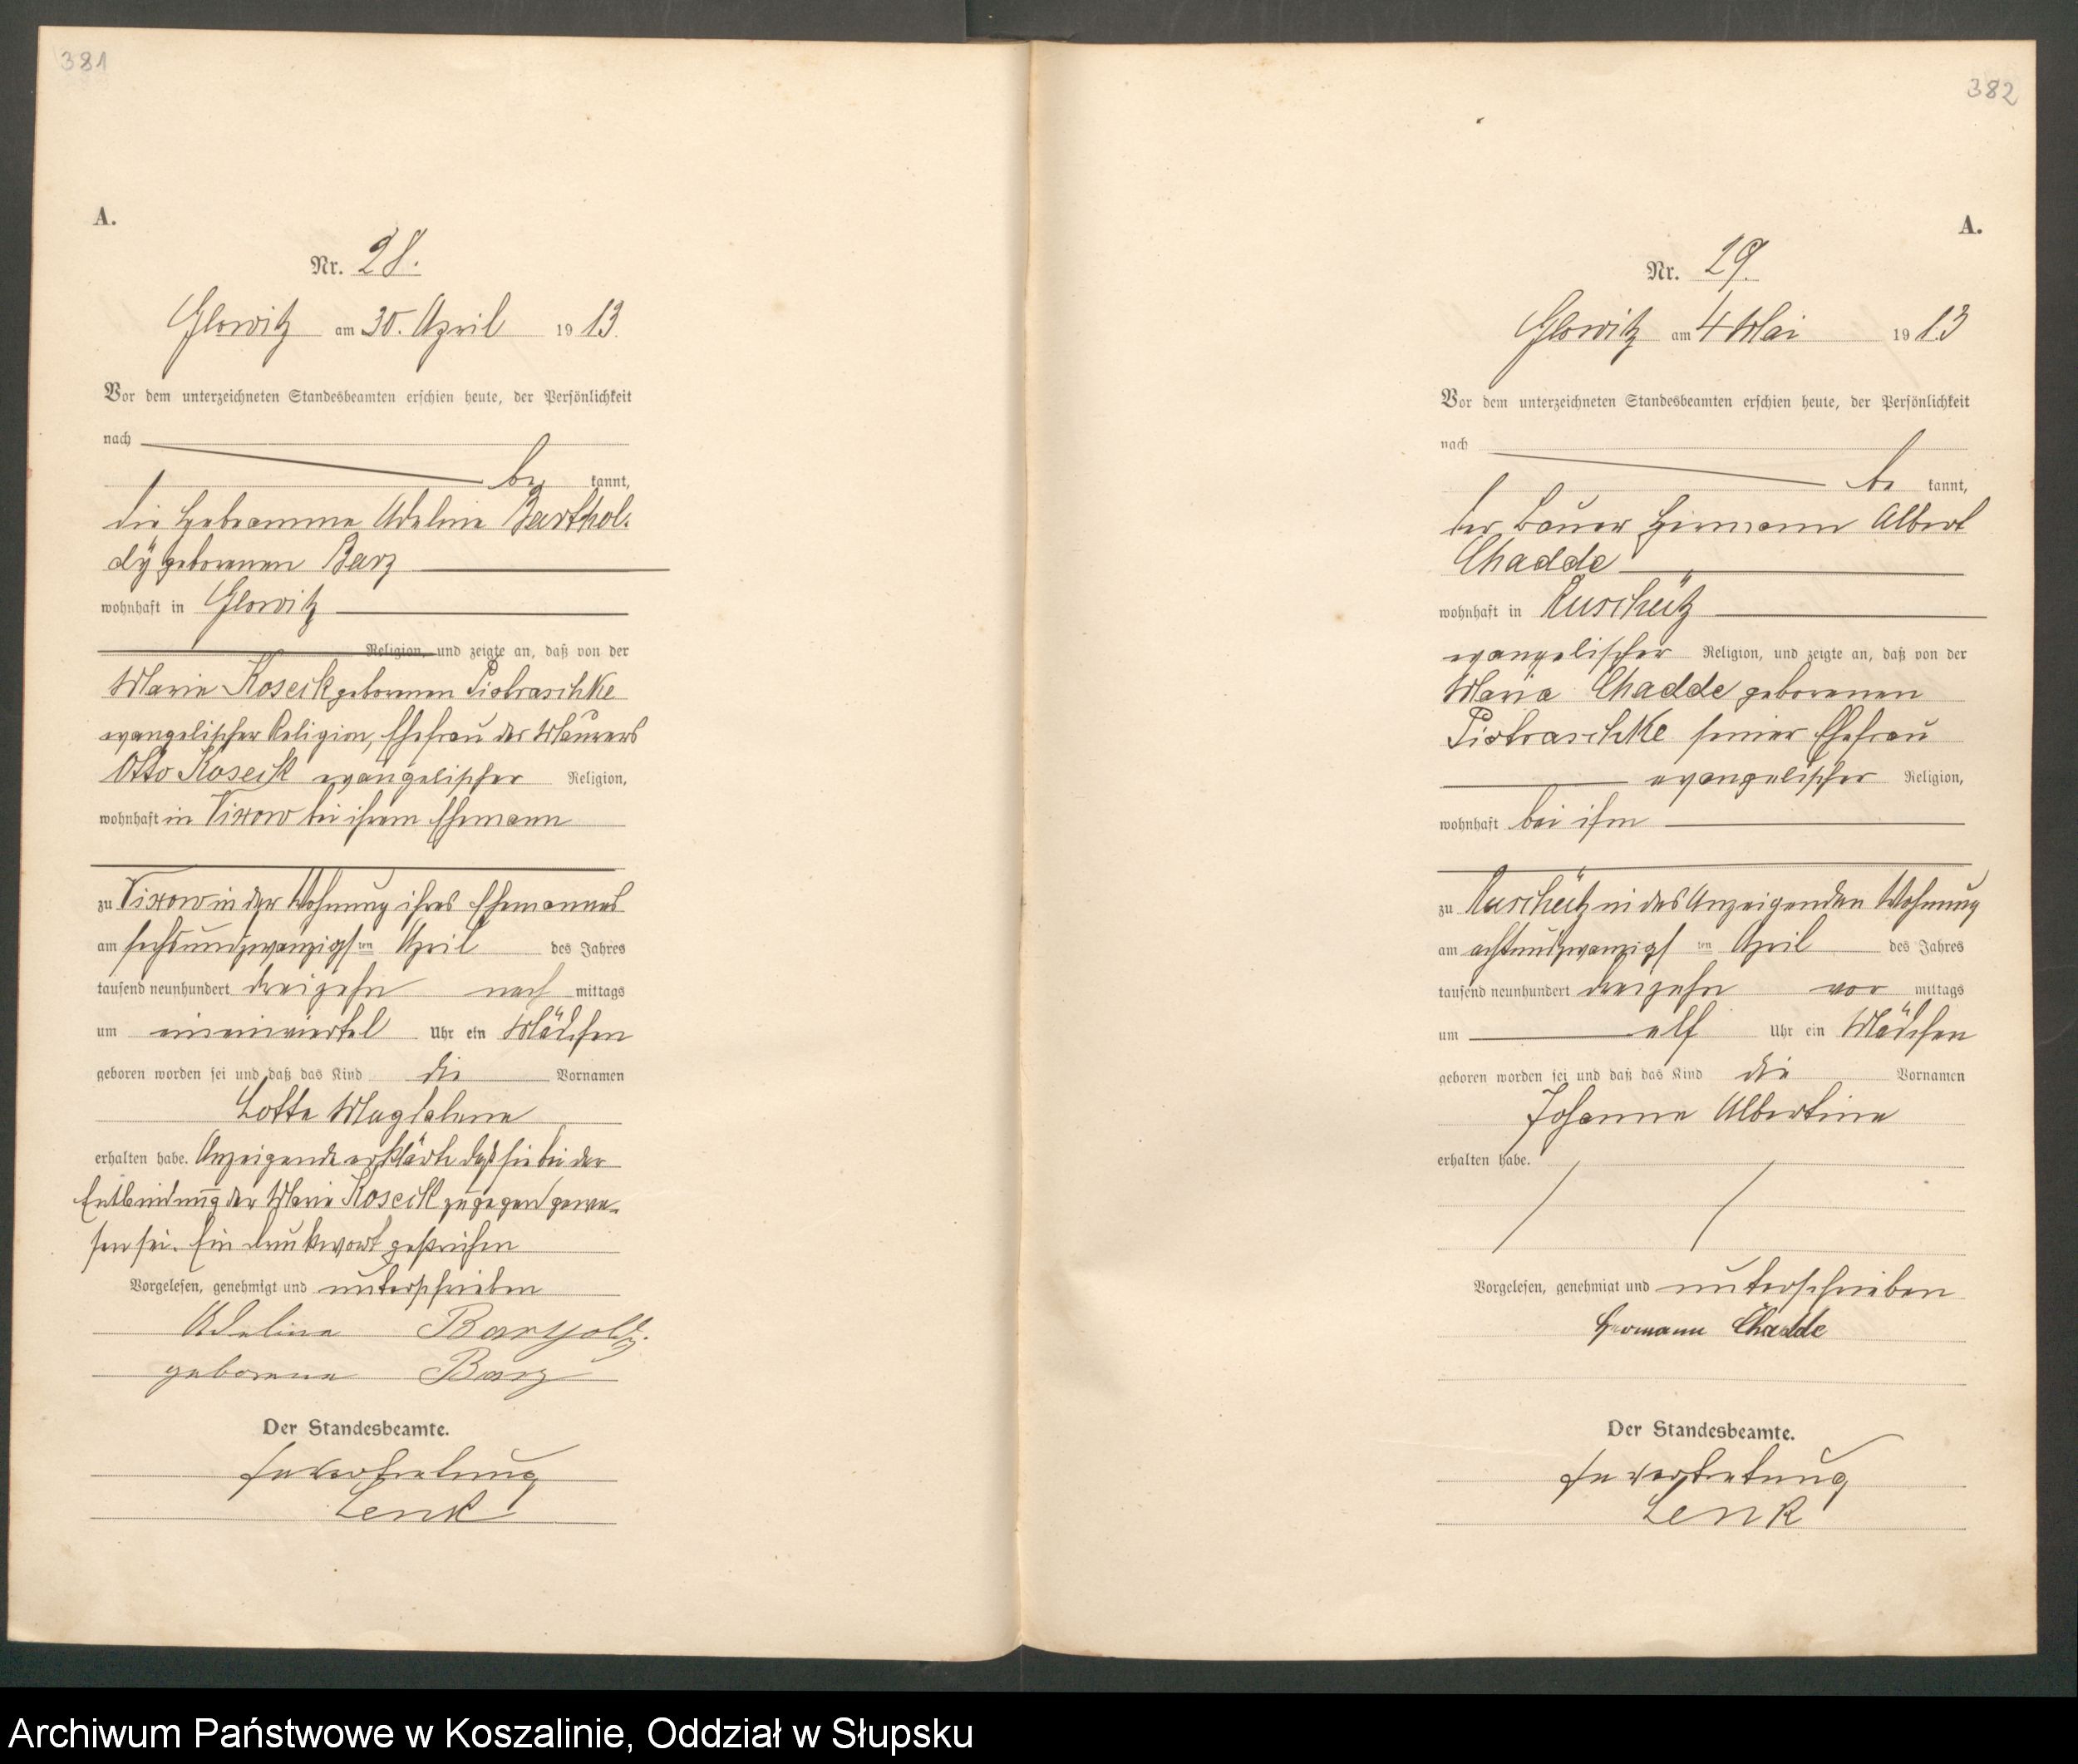 381
A.
Nr. 28.
Glowitz am 30. April 1913.
Vor dem unterzeichneten Standesbeamten erschien heute, der Persönlichkeit
nach
be kannt,
die Hebeamme Adeline Barthol-
dy geborenen Barz
wohnhaft in Glowitz
Religion, und zeigte an, daß von der
Marie Koseik geborenen Piotraschke
evangelischer Religion, Ehefrau des Maurers
Otto Koseik evangelischer Religion,
wohnhaft in Vixow bei ihrem Ehemann
zu Vixow in der Wohnung ihres Ehemannes
am sechsundzwanzigsten April des Jahres
tausend neunhundert dreizehn nach mittags
um eineinviertel Uhr ein Mädchen
geboren worden sei und daß das Kind die Vornamen
Lotte Magdalene
erhalten habe. Anzeigende erklärte daß sie bei der
Entbindung der Marie Koseik zugegen gewe-
sen sei. Ein Druckwort gestrichen
Vorgelesen, genehmigt und unterschrieben
Adeline Bartholdy.
geborene Barz
Der Standesbeamte.
In Vertretung
Lenk
382
A.
Nr. 29.
Glowitz am 4 Mai 1913
Vor dem unterzeichneten Standesbeamten erschien heute, der Persönlichkeit
nach
be kannt,
der Bauer Hermann Albert
Chadde
wohnhaft in Ruschütz
evangelischer Religion, und zeigte an, daß von der
Maria Chadde geborenen
Piotraschke seiner Ehefrau
evangelischer Religion,
wohnhaft bei ihm
zu Ruschütz in des Anzeigenden Wohnung
am achtundzwanzigsten April des Jahres
tausend neunhundert dreizehn vor mittags
um elf Uhr ein Mädchen
geboren worden sei und daß das Kind die Vornamen
Johanne Albertine
erhalten habe.
Vorgelesen, genehmigt und unterschrieben
Hermann Chadde
Der Standesbeamte.
In Vertretung
Lenk
Archiwum Państwowe w Koszalinie, Oddział w Słupsku